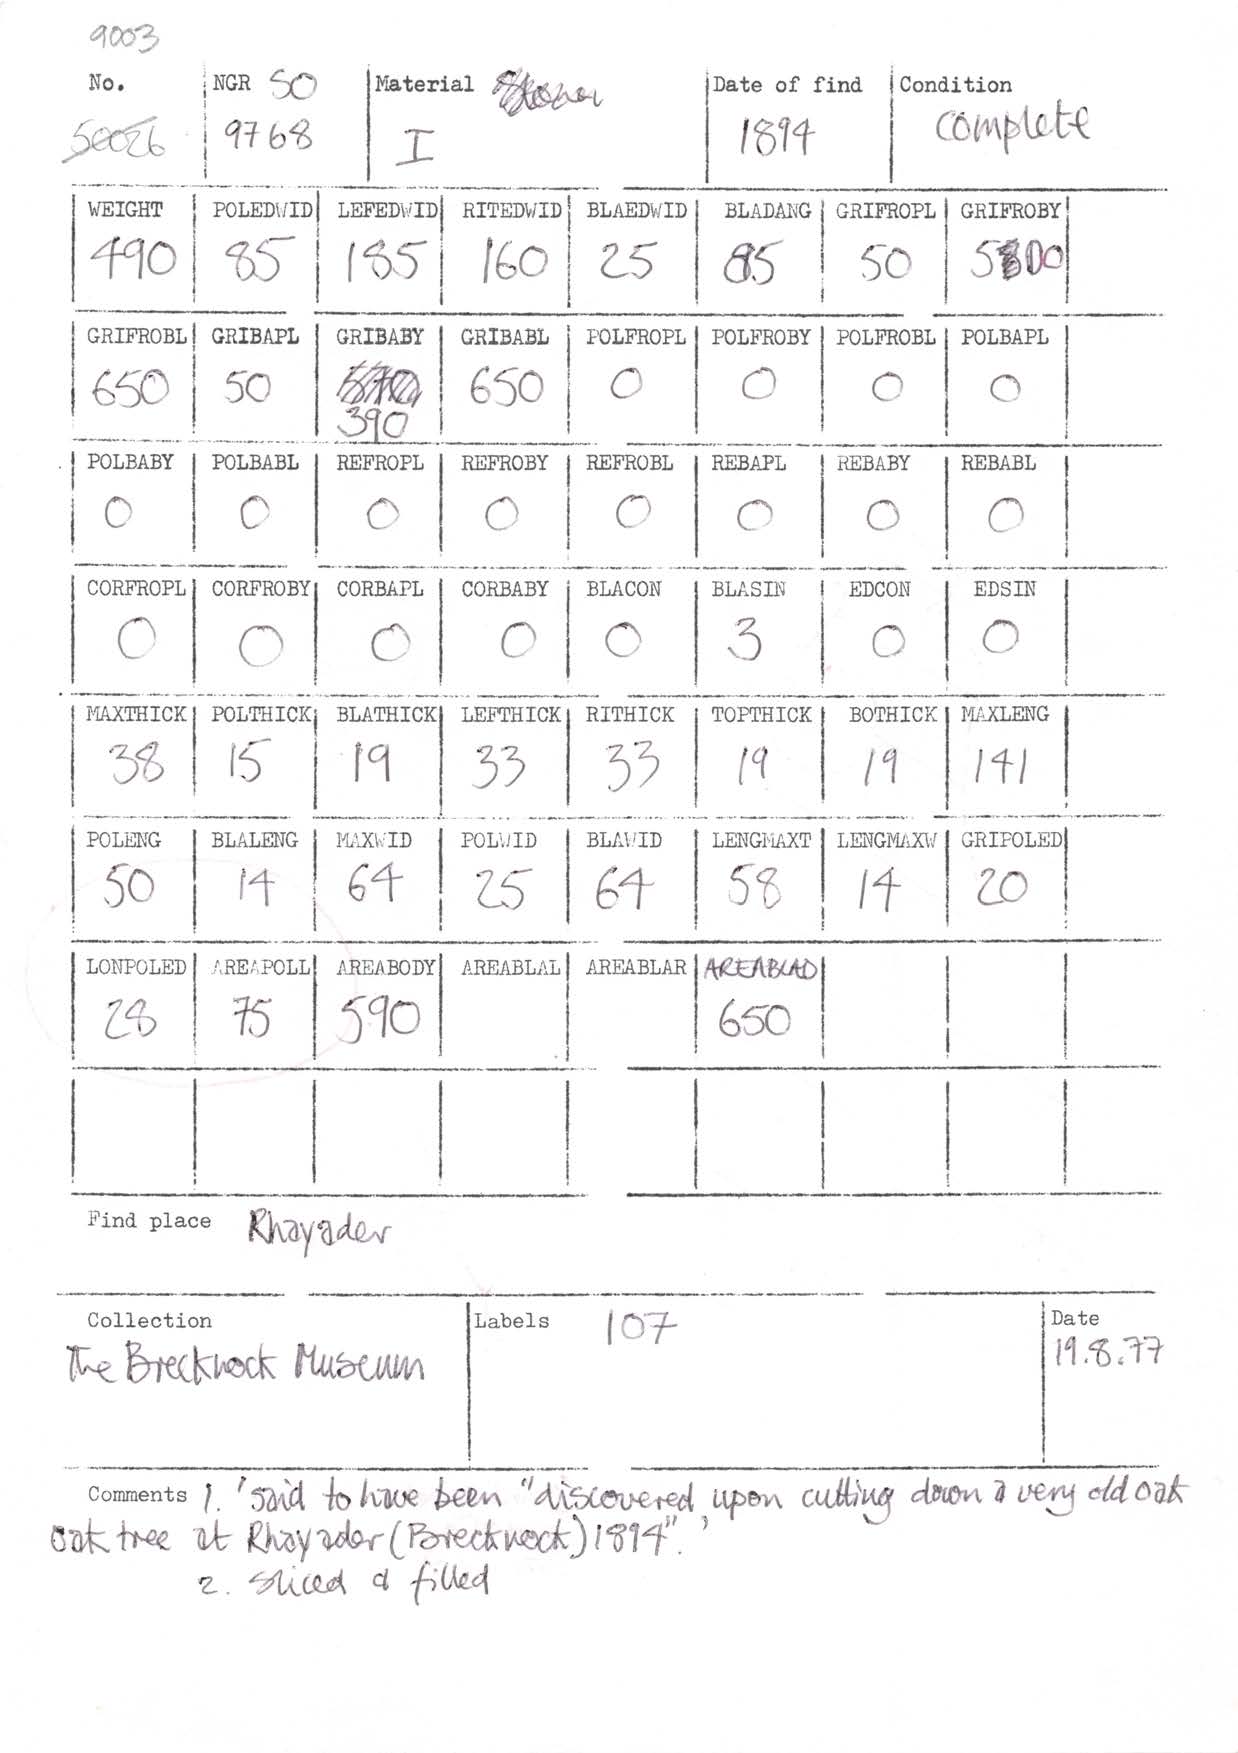 9003
No. NGR SO Material Date of find Condition
50026 9768 I 1894 complete
WEIGHT POLEDWID LEFEDWID RITEDWID BLAEDWID BLADANG GRIFROPL GRIFROBY
490 85 185 160 25 85 50
GRIFROBL GRIBAPL GRIBABY GRIBABL POLFROPL POLFROBY POLFROBL POLBAPL
650 50 390 650 0 0 0 0
POLBABY POLBABL REFROPL REFROBY REFROBL REBAPL REBABY REBABL
0 0 0 0 0 0 0 0
CORFROPL CORFROBY CORBAPL CORBABY BLACON BLASIN EDCON EDSIN
0 0 0 0 0 3 0 0
MAXTHICK POLTHICK BLATHICK LEFTHICK RITHICK TOPTHICK BOTHICK MAXLENG
38 15 19 33 33 19 19 141
POLENG BLALENG MAXWID POLWID BLAWID LENGMAXT LENGMAXW GRIPOLED
50 14 64 25 64 58 14 20
LONPOLED AREAPOLL AREABODY AREABLAL AREABLAR AREABLAD
28 75 590 650
Find place Rhayader
Collection Labels 107 Date
The Brecknock Museum 19.8.77
Comments 1. 'said to have been "discovered upon cutting down a very old oak
oak tree at Rhayader (Brecknock) 1894".'
2. sliced & filled